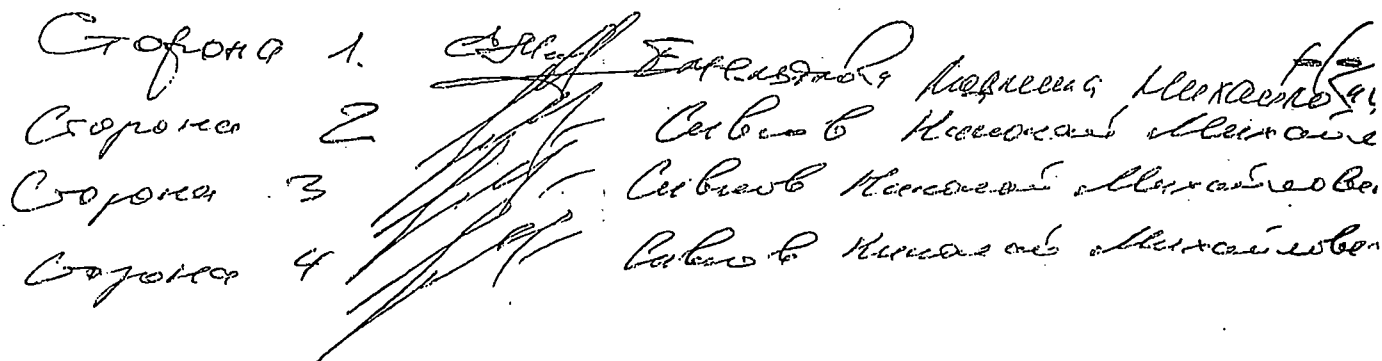 Сторона 1. Людмила Михайло
Сторона 2 Сивков Николай Михайл
Сторона 3 Сивков Николай Михайлови
Сторона 4 Сивков Николай Михайлови